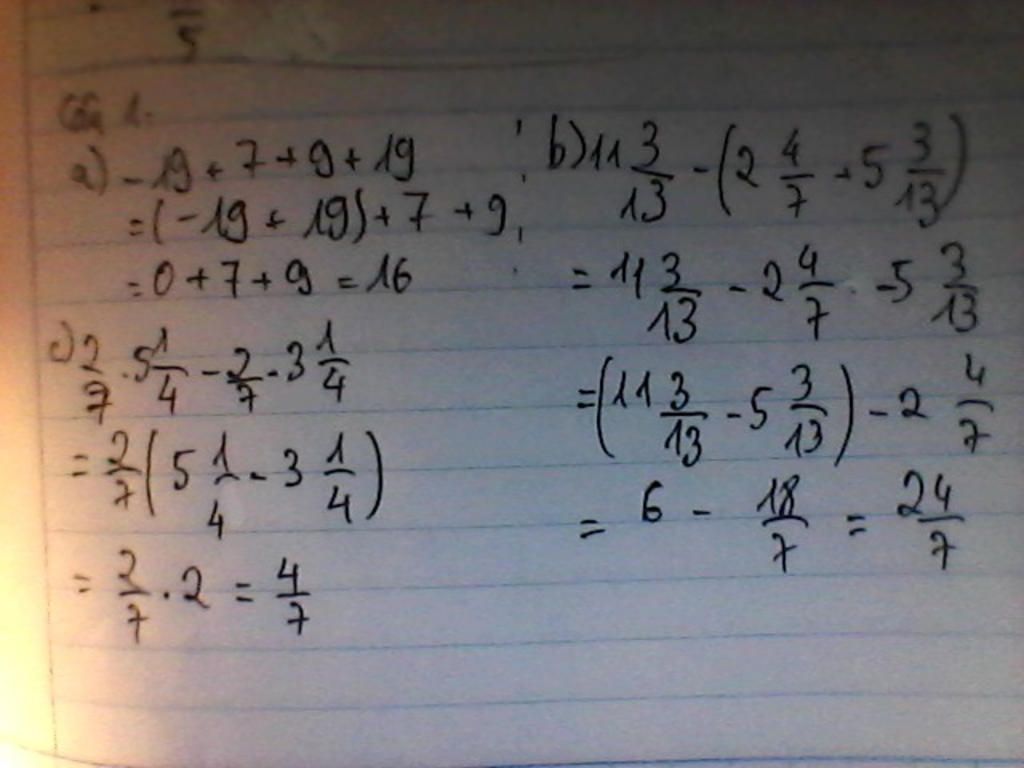 5
Câu 1.
a) -19 + 7 + 9 + 19
= (-19 + 19) + 7 + 9
= 0 + 7 + 9 = 16
c) 2/7 . 5 1/4 - 2/7 . 3 1/4
= 2/7 ( 5 1/4 - 3 1/4 )
= 2/7 . 2 = 4/7
b) 11 3/13 - ( 2 4/7 + 5 3/13 )
= 11 3/13 - 2 4/7 - 5 3/13
= ( 11 3/13 - 5 3/13 ) - 2 4/7
= 6 - 18/7 = 24/7